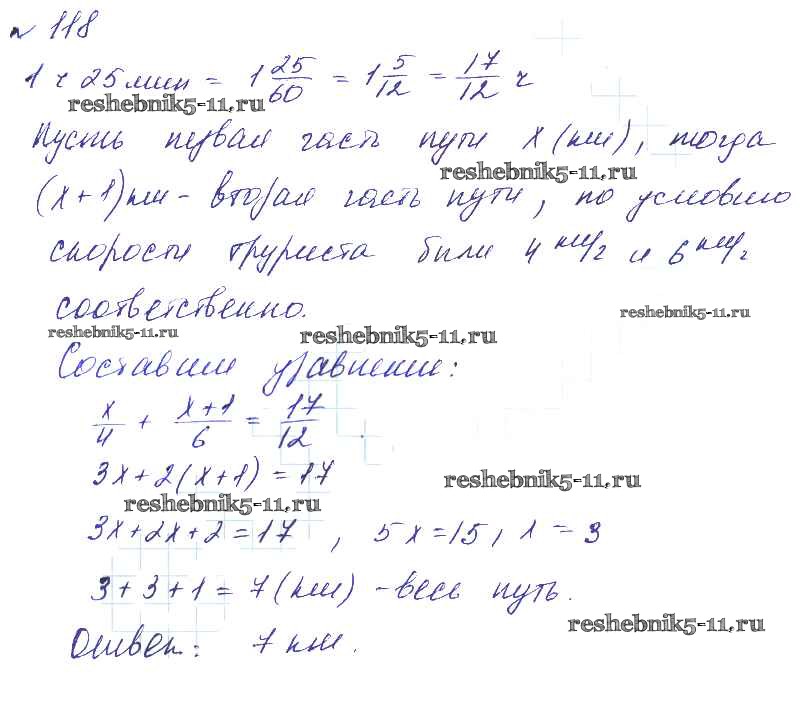 № 118
1 ч 25 мин = 1 25/60 = 1 5/12 = 17/12 ч
reshebnik5-11.ru
Пусть первая часть пути x (км), тогда
reshebnik5-11.ru
(x+1) км - вторая часть пути, по условию
скорости туриста были 4 км/ч и 6 км/ч
соответственно.
reshebnik5-11.ru
reshebnik5-11.ru
reshebnik5-11.ru
Составим уравнение:
x/4 + (x+1)/6 = 17/12
3x + 2(x+1) = 17
reshebnik5-11.ru
reshebnik5-11.ru
3x + 2x + 2 = 17 , 5x = 15, x = 3
3 + 3 + 1 = 7 (км) - весь путь.
reshebnik5-11.ru
Ответ: 7 км.